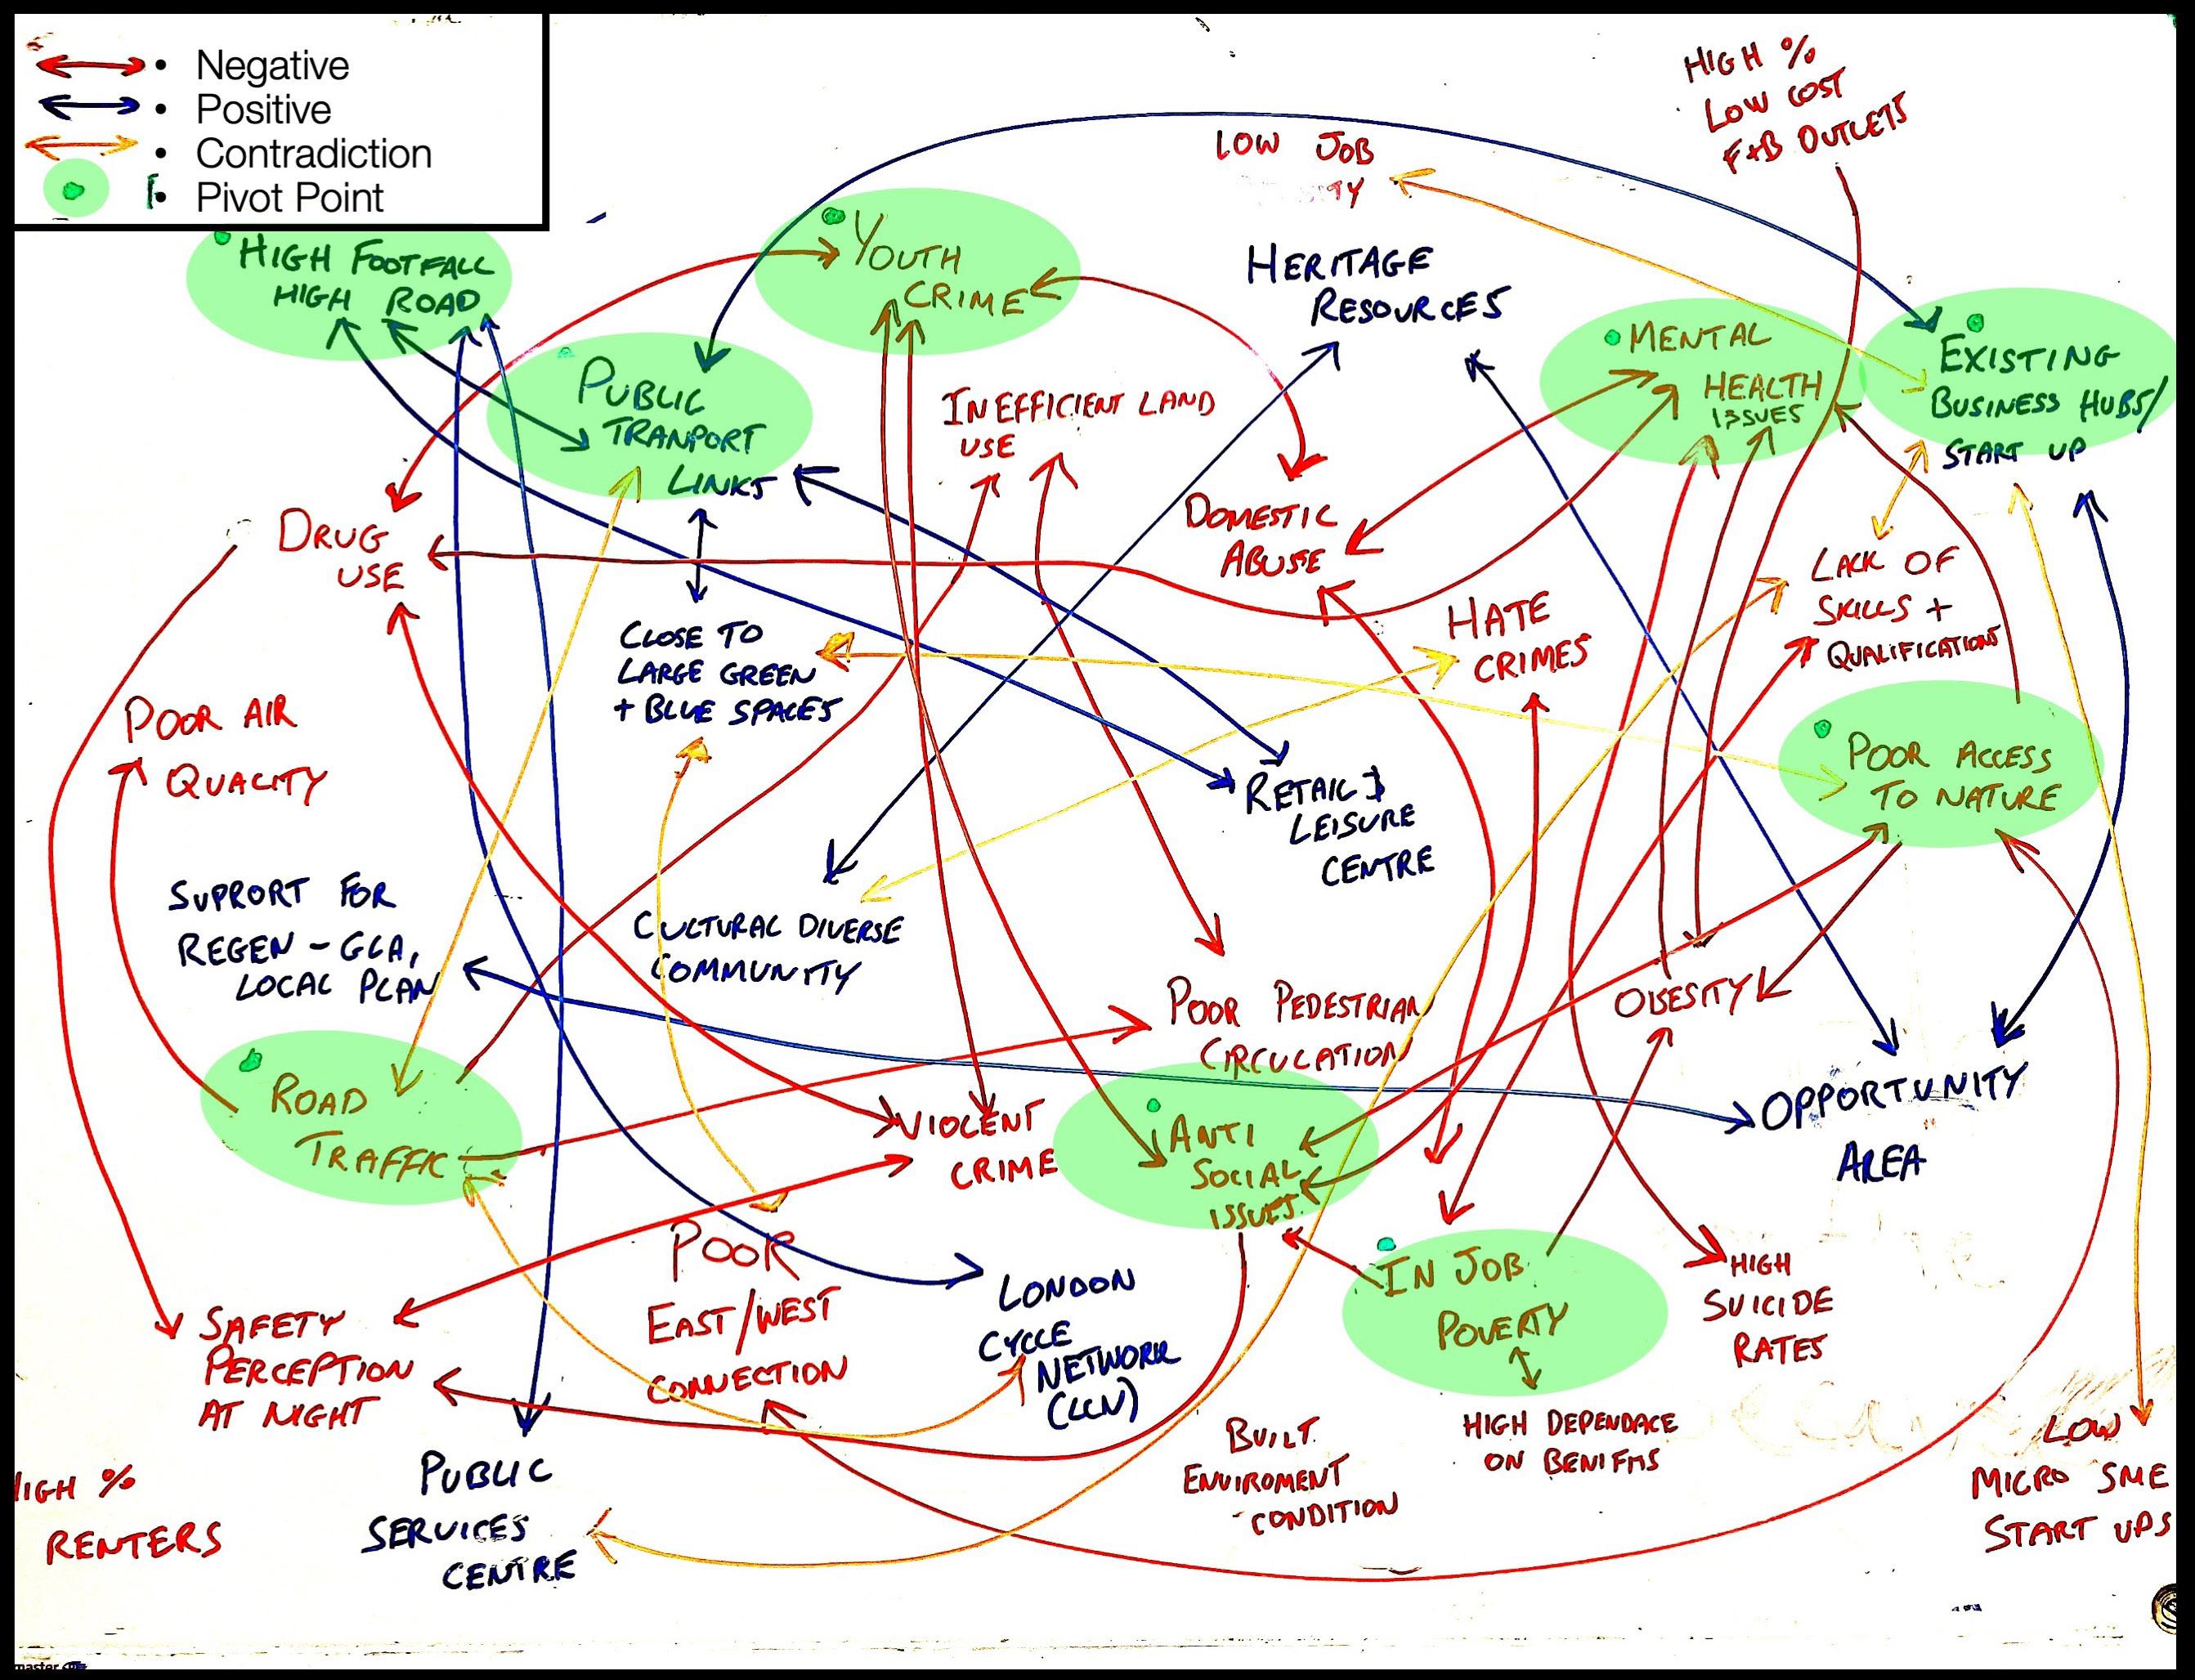 Negative
Positive
Contradiction
Pivot Point
HIGH %
LOW COST
F+B OUTLETS
LOW JOB
TY
HIGH FOOTFALL
HIGH ROAD
YOUTH
CRIME
HERITAGE
RESOURCES
MENTAL
HEALTH
ISSUES
EXISTING
BUSINESS HUBS/
START UP
PUBLIC
TRANPORT
LINKS
INEFFICIENT LAND
USE
DRUG
USE
DOMESTIC
ABUSE
LACK OF
SKILLS +
QUALIFICATIONS
HATE
CRIMES
CLOSE TO
LARGE GREEN
+ BLUE SPACES
POOR AIR
QUALITY
POOR ACCESS
TO NATURE
RETAIL &
LEISURE
CENTRE
SUPPORT FOR
REGEN - GLA,
LOCAL PLAN
CULTURAL DIVERSE
COMMUNITY
POOR PEDESTRIAN
CIRCULATION
OBESITY
ROAD
TRAFFIC
VIOLENT
CRIME
ANTI
SOCIAL
ISSUES.
OPPORTUNITY
AREA
POOR
EAST/WEST
CONNECTION
LONDON
CYCLE
NETWORK
(LCN)
IN JOB
POVERTY
HIGH
SUICIDE
RATES
SAFETY
PERCEPTION
AT NIGHT
HIGH DEPENDACE
ON BENIFITS
BUILT
ENVIROMENT
CONDITION
LOW
MICRO SME
START UPS
HIGH %
RENTERS
PUBLIC
SERVICES
CENTRE
master